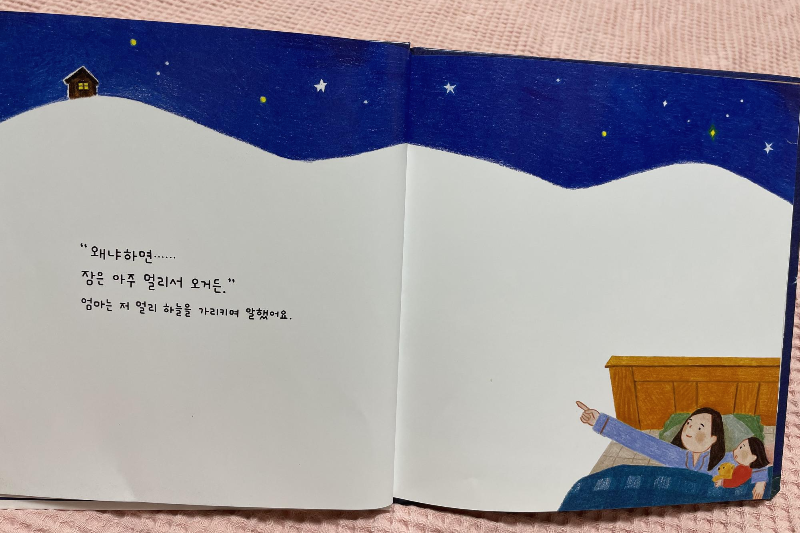 “왜냐하면……
잠은 아주 멀리서 오거든.”
엄마는 저 멀리 하늘을 가리키며 말했어요.